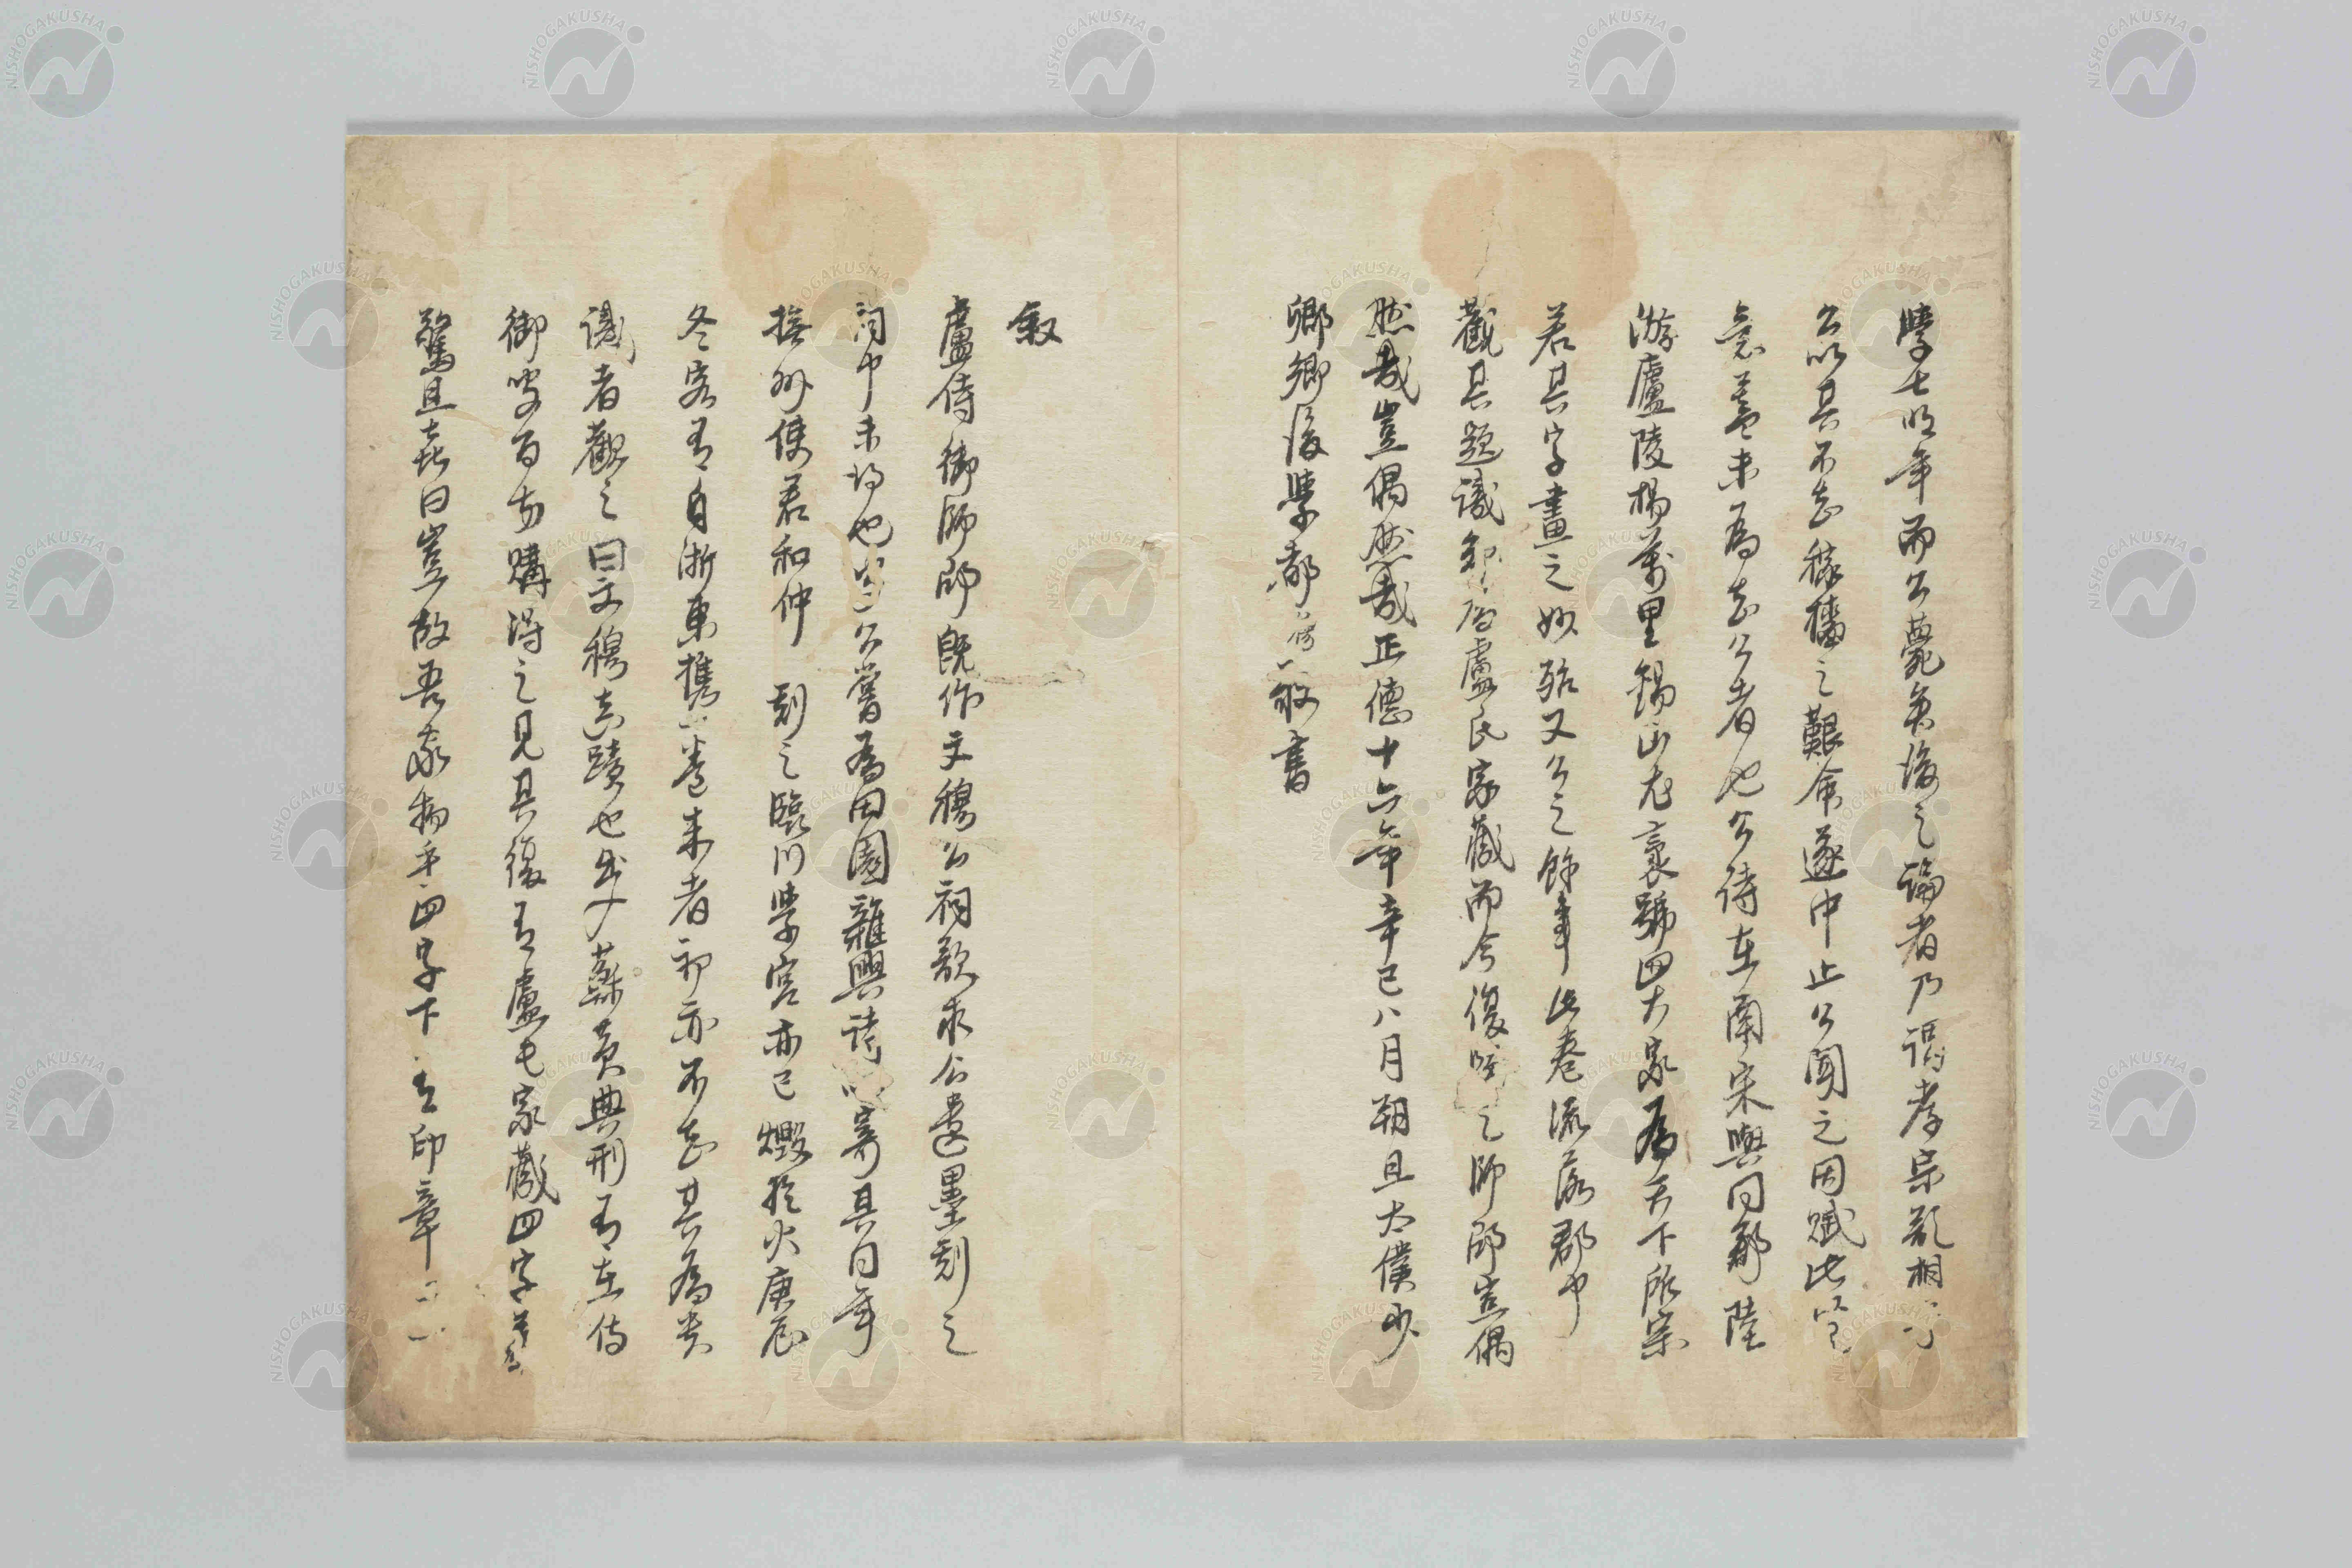 學士明年而公薨矣後之論者乃謂孝宗欲相
公以其不知稼穡之艱難遂中止公聞之因賦此
意蓋未為知公者也公侍在南宋與同鄉陸
游廬陵楊萬里錫山尤袤號四大家為天下所宗
若其字畫之妙殆又公之餘事此卷流落郡中
觀其題識知為盧氏家藏而今復歸之師卲豈偶
然哉豈偶然哉正德十六年辛巳八月朔旦太僕少
卿鄉後學都穆敬書
叙
盧侍御師卲既作文穆公祠欲求公遺墨刻之
祠中未得也公嘗為田園雜興詩以寄其同年
撫州使君和仲刻之臨川學宮亦已燬於火庚辰
冬客有自浙東攜一卷來者初亦不知其為貴
識者觀之曰文穆真蹟也出入蘇黃典刑有在侍
御以百方購得之見其後有盧氏家藏四字
驚且喜曰豈故吾家物乎四字下有印章二